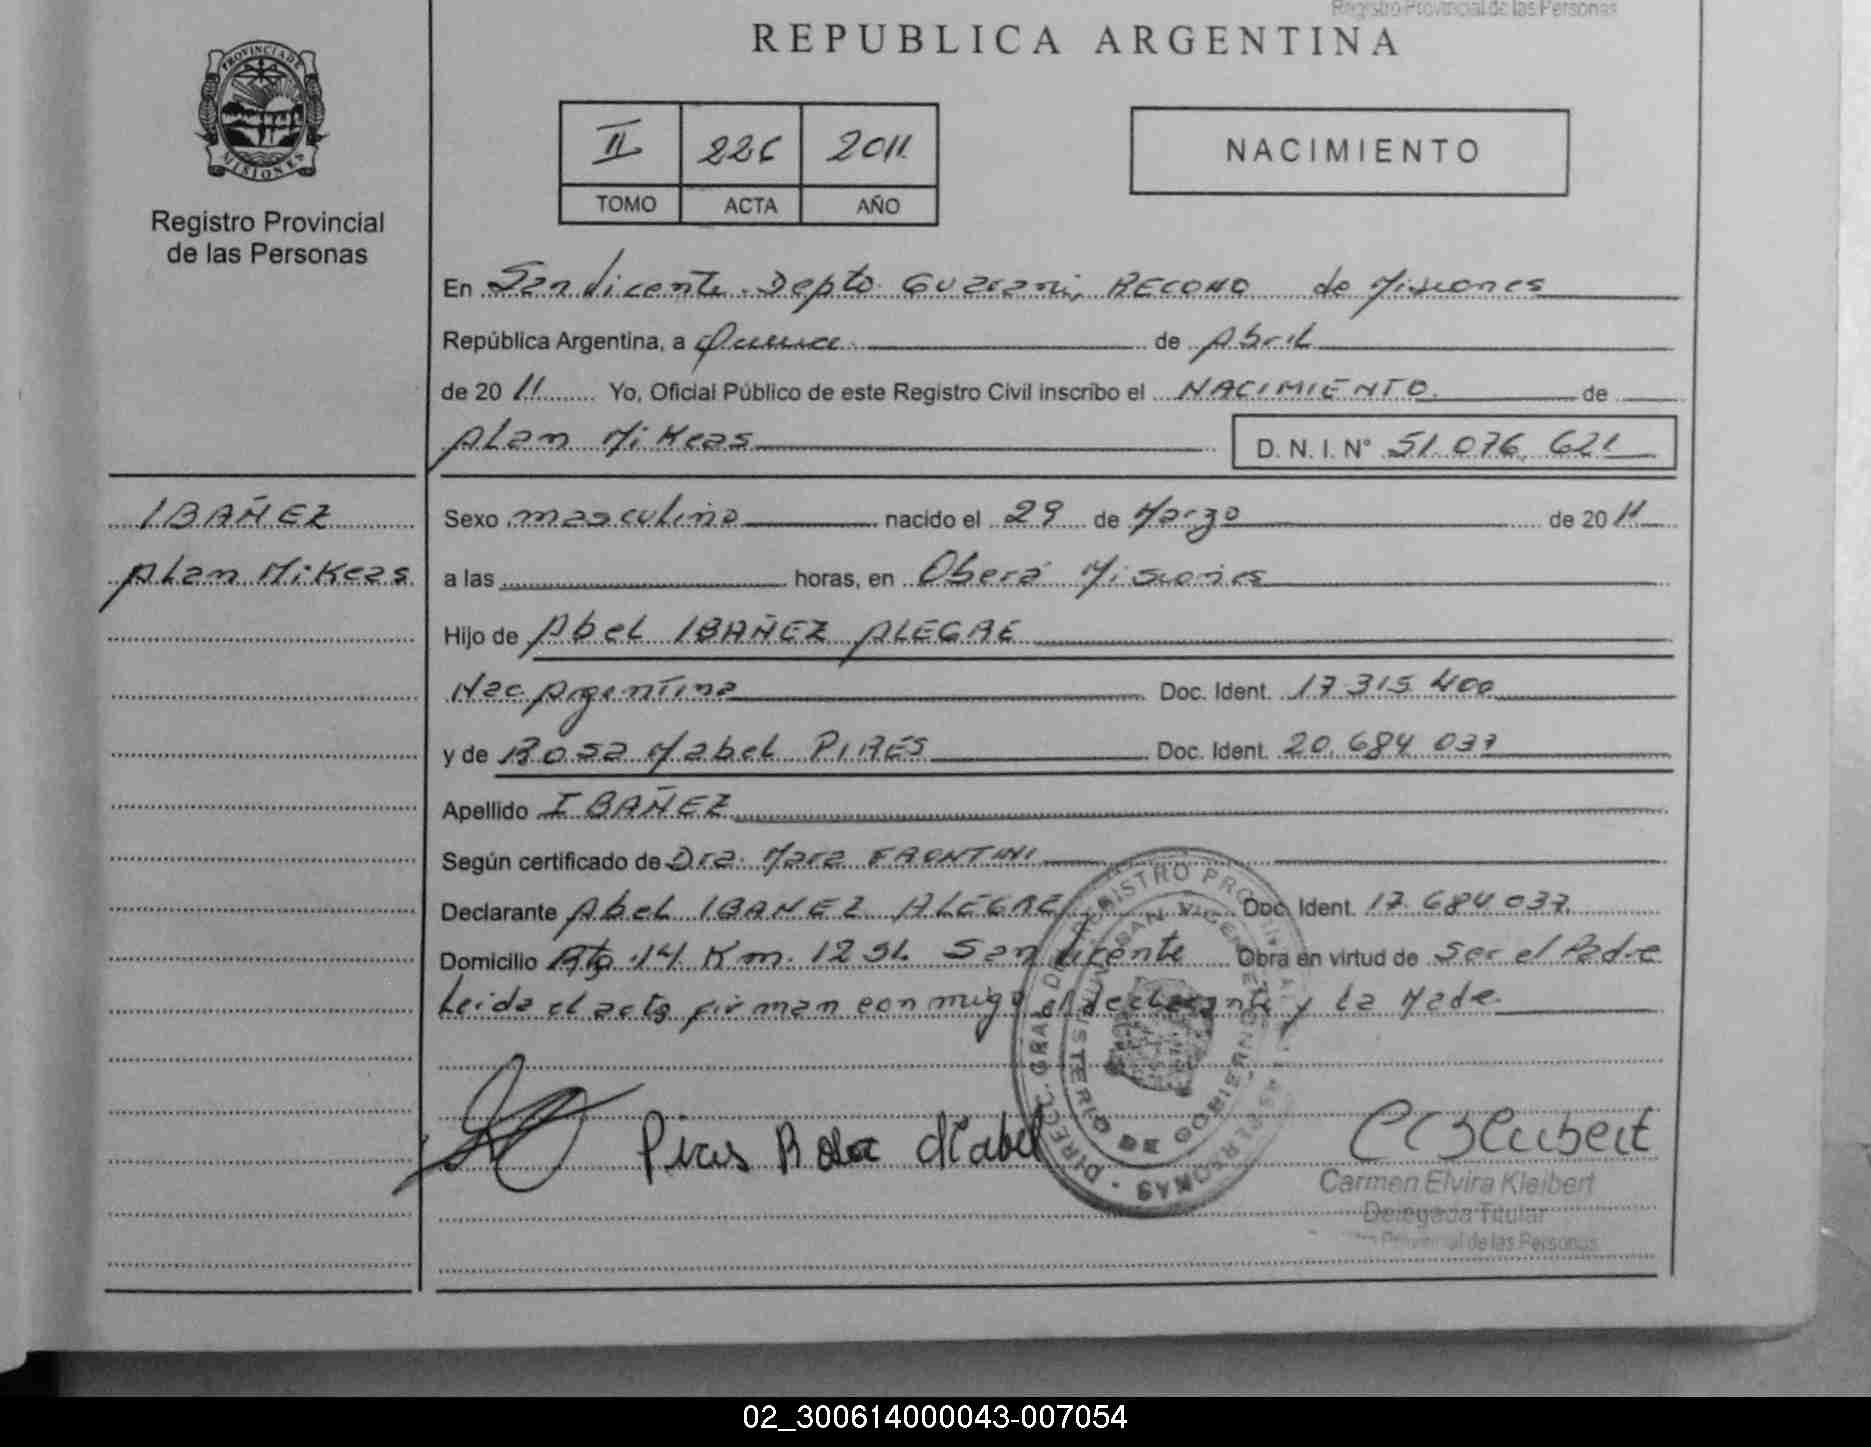 Registro Provincial de las Personas
REPUBLICA ARGENTINA
PROVINCIA DE
MISIONES
Registro Provincial
de las Personas
II 226 2011
TOMO ACTA AÑO
NACIMIENTO
En San Vicente Depto Guarani, de Misiones
República Argentina, a Quince de Abril
de 20 11 Yo, Oficial Público de este Registro Civil inscribo el NACIMIENTO de
Alan Mikeas D. N. I. N° 51.076.621
IBAÑEZ
Alan Mikeas
Sexo masculino nacido el 29 de Marzo de 20 11
a las horas, en Oberá Misiones
Hijo de Abel IBAÑEZ ALEGRE
Nac. Argentina Doc. Ident. 17.315.400
y de Rosa Mabel PIRES Doc. Ident. 20.684.037
Apellido IBAÑEZ
Según certificado de Dra. Mara FRONTINI
Declarante Abel IBAÑEZ ALEGRE Doc. Ident. 17.684.037
Domicilio Rta 14 Km. 1251 San Vicente Obra en virtud de Ser el Padre
Leida el acta firman conmigo el declarante y la Made
Pires Rosa Mabel
Carmen Elvira Kleibert
Delegada Titular
Provincial de las Personas
02_300614000043-007054